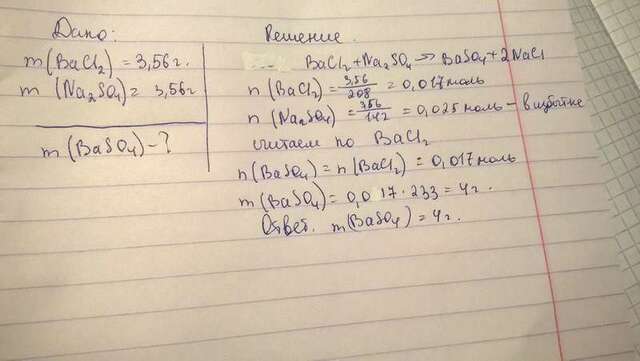 Дано:
m(BaCl₂) = 3,56г.
m(Na₂SO₄) = 3,56г
m(BaSO₄) - ?
Решение.
BaCl₂ + Na₂SO₄ → BaSO₄ + 2NaCl
n(BaCl₂) = 3,56/208 = 0,017 моль
n(Na₂SO₄) = 3,56/142 = 0,025 моль - в избытке
считаем по BaCl₂
n(BaSO₄) = n(BaCl₂) = 0,017 моль
m(BaSO₄) = 0,017 · 233 = 4г.
Ответ. m(BaSO₄) = 4г.